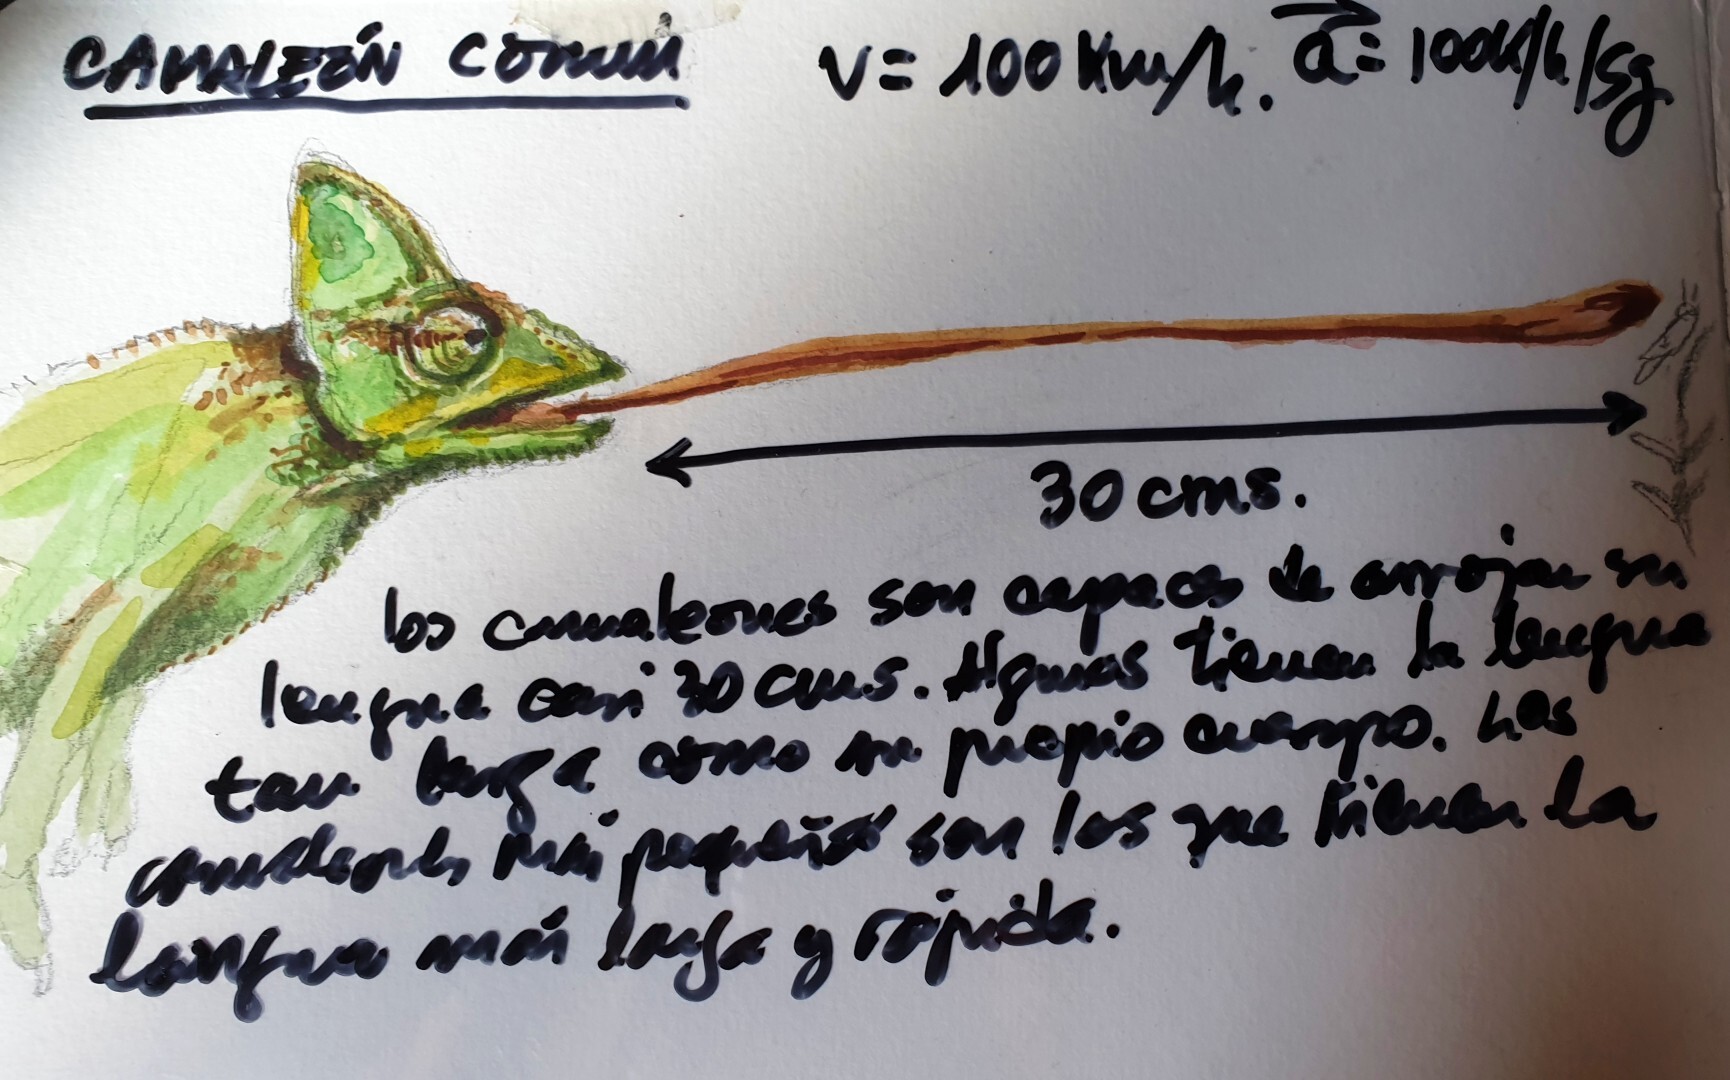 CAMALEÓN COMÚN
V= 100 Km/h. a= 100K/h/sg
30 cms.
los camaleones son capaces de arrojar su
lengua casi 30 cms. Algunos tienen la lengua
tan larga como su propio cuerpo. Los
camaleones más pequeños son los que tienen la
lengua más larga y rápida.